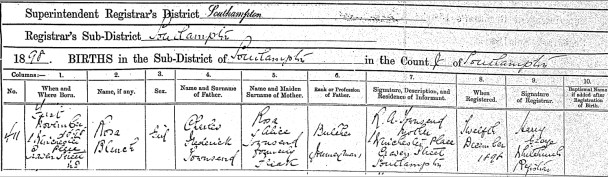 Superintendent Registrar's District Southampton
Registrar's Sub-District Southampton
1898. BIRTHS in the Sub-District of Southampton in the County of Southampton
Columns:— 1. 2. 3. 4. 5. 6. 7. 8. 9. 10.
No. When and Where Born. Name, if any. Sex. Name and Surname of Father. Name and Maiden Surname of Mother. Rank or Profession of Father. Signature, Description, and Residence of Informant. When Registered. Signature of Registrar. Baptismal Name if added after Registration of Birth.
411 November 1898 Winchester Place
Rosa Blanch
Girl
Charles Frederick Townsend
Rosa Alice Townsend formerly
Butcher Journeyman
R. A. Townsend Mother Winchester Place Street Southampton
Twelfth December 1898
Registrar